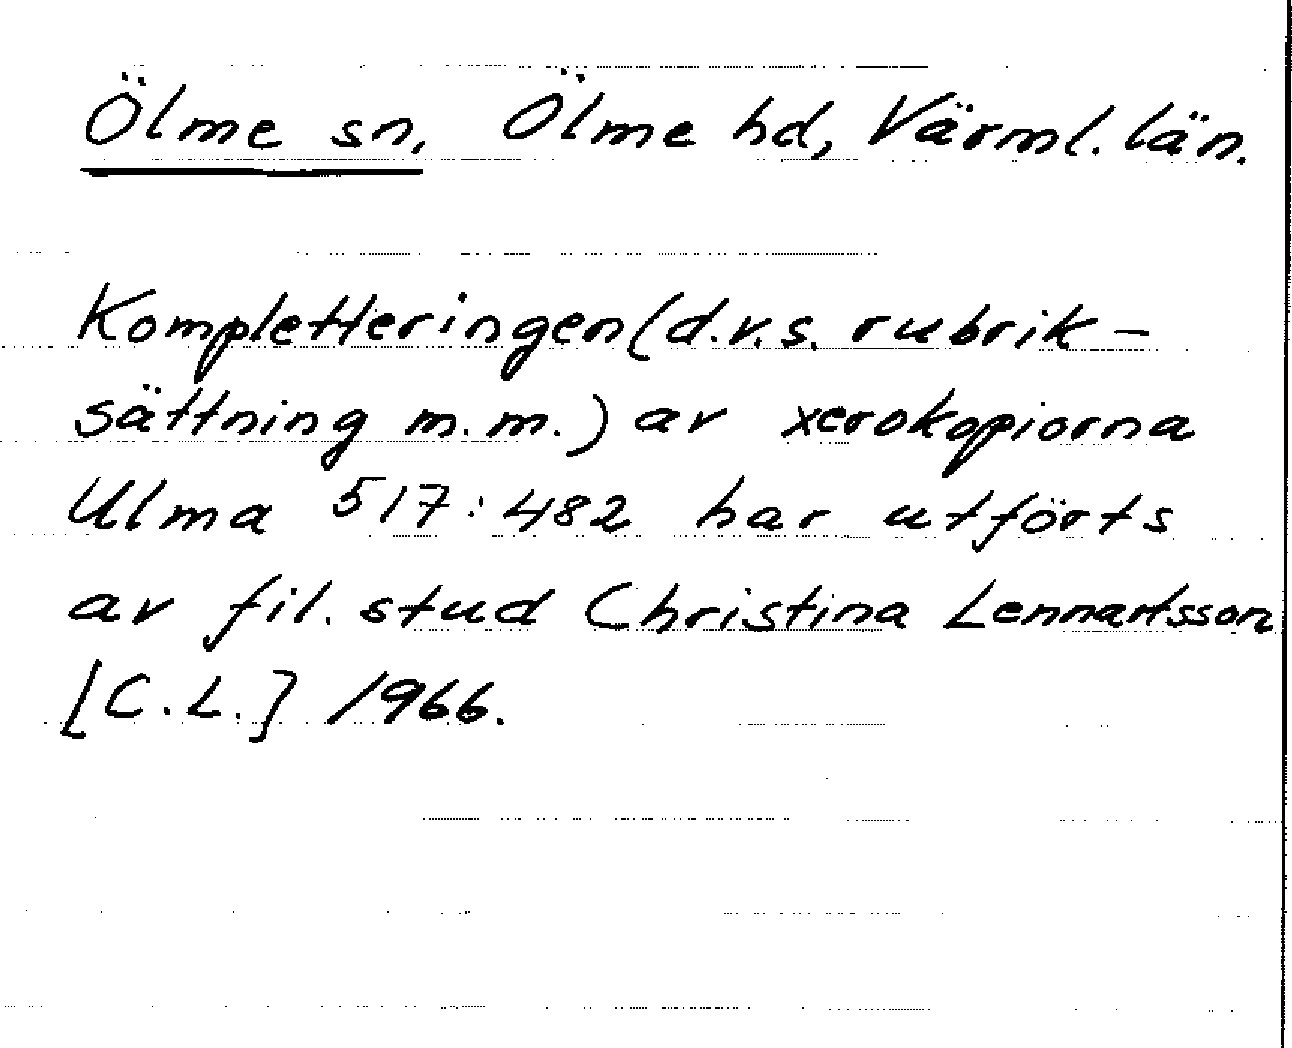 Ölme sn, Ölme hd, Värml. län.
Kompletteringen (d.v.s. rubrik-
sättning m.m.) av xerokopiorna
Ulma 517:482 har utförts
av fil. stud Christina Lennartsson
[C.L.] 1966.